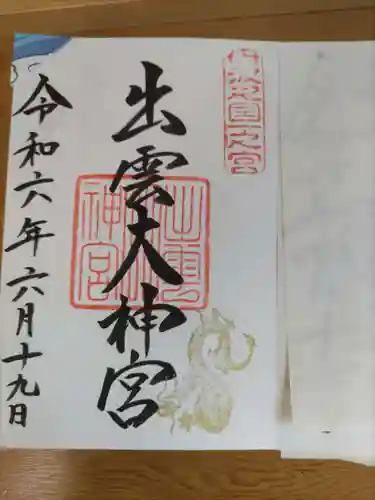 丹波國一之宮
出雲大神宮
出雲大神宮
令和六年六月十九日